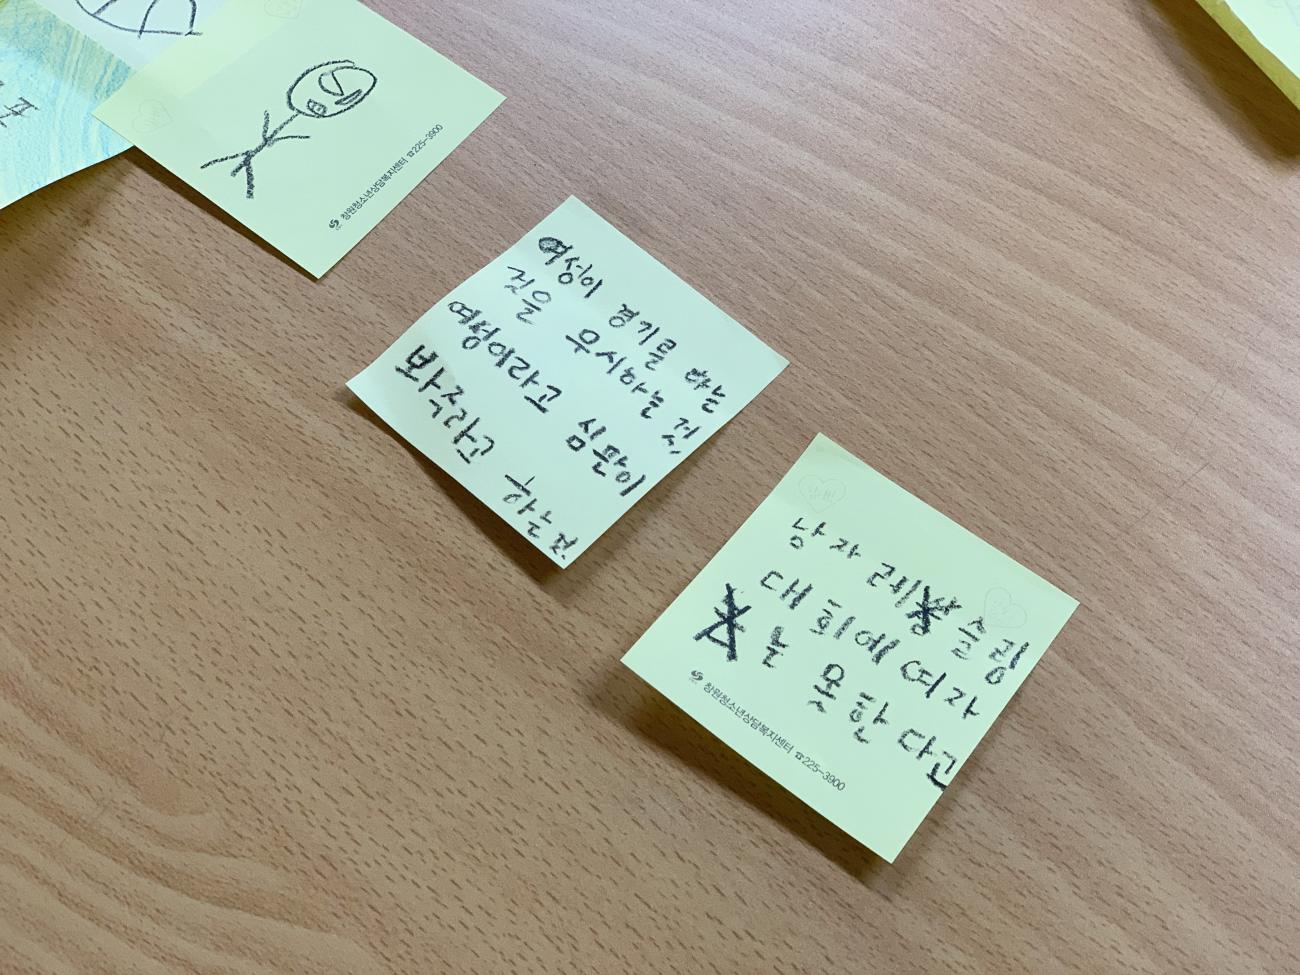 창원청소년상담복지센터 ☎225-3900
여성이 경기를 하는
것을 무시하는 것
여성이라고 심판이
봐주라고 하는것
남자 레슬링
대회에 여자
는 못한다고
창원청소년상담복지센터 ☎225-3900